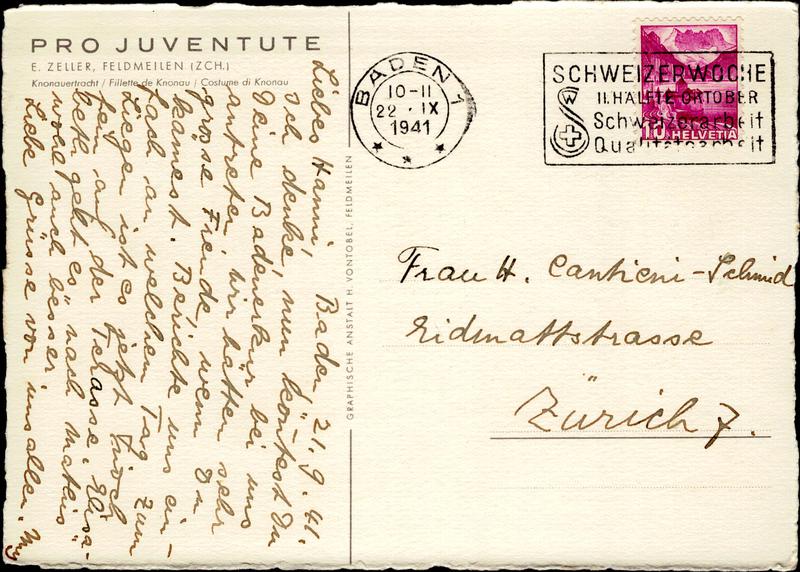 PRO JUVENTUTE
E. ZELLER, FELDMEILEN (ZCH.)
Knonauertracht / Fillette de Knonau / Costume di Knonau
Liebes Hanni, Baden 21. 9. 41.
Ich denke, nun könntest Du
Deine Badenerkur bei uns
antreten, wir hätten sehr
grosse Freude, wenn Du
kämest. Berichte uns ein-
fach an welchem Tag. Zum
Liegen ist es jetzt noch
fein auf der Terasse. Elisa-
beth geht es "nach Mätteis"
wohl auch besser.
Liebe Grüsse von uns allen.
GRAPHISCHE ANSTALT H. VONTOBEL, FELDMEILEN
BADEN 1
10-11
22. IX
1941
SCHWEIZERWOCHE
II. HÄLFTE OKTOBER
Schweizerarbeit
Qualitätsarbeit
10 HELVETIA
Frau H. Cantieni-Schmid
Eidmattstrasse
Zürich 7.